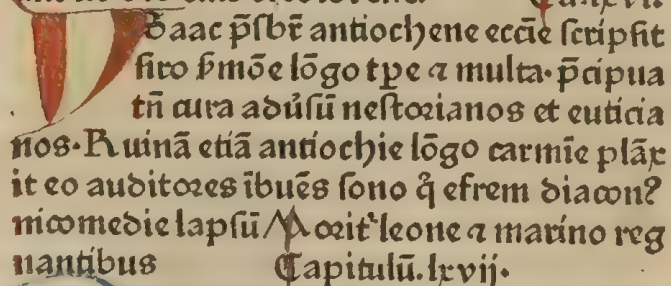 Isaac p̄sbr̄ antiochene ecc̄ie scripsit
siro ẜmōe lōgo tp̄e ⁊ multa· p̄cipua
tn̄ cura adūsū nestorianos et euticia
nos· Ruinā etiā antiochie lōgo carmīe plāx
it eo auditores ībuēs sono q̄ efrem diacon⁹
nicomedie lapsū Morit᷑ leone ⁊ marino reg
nantibus Capitulū. lxvij·